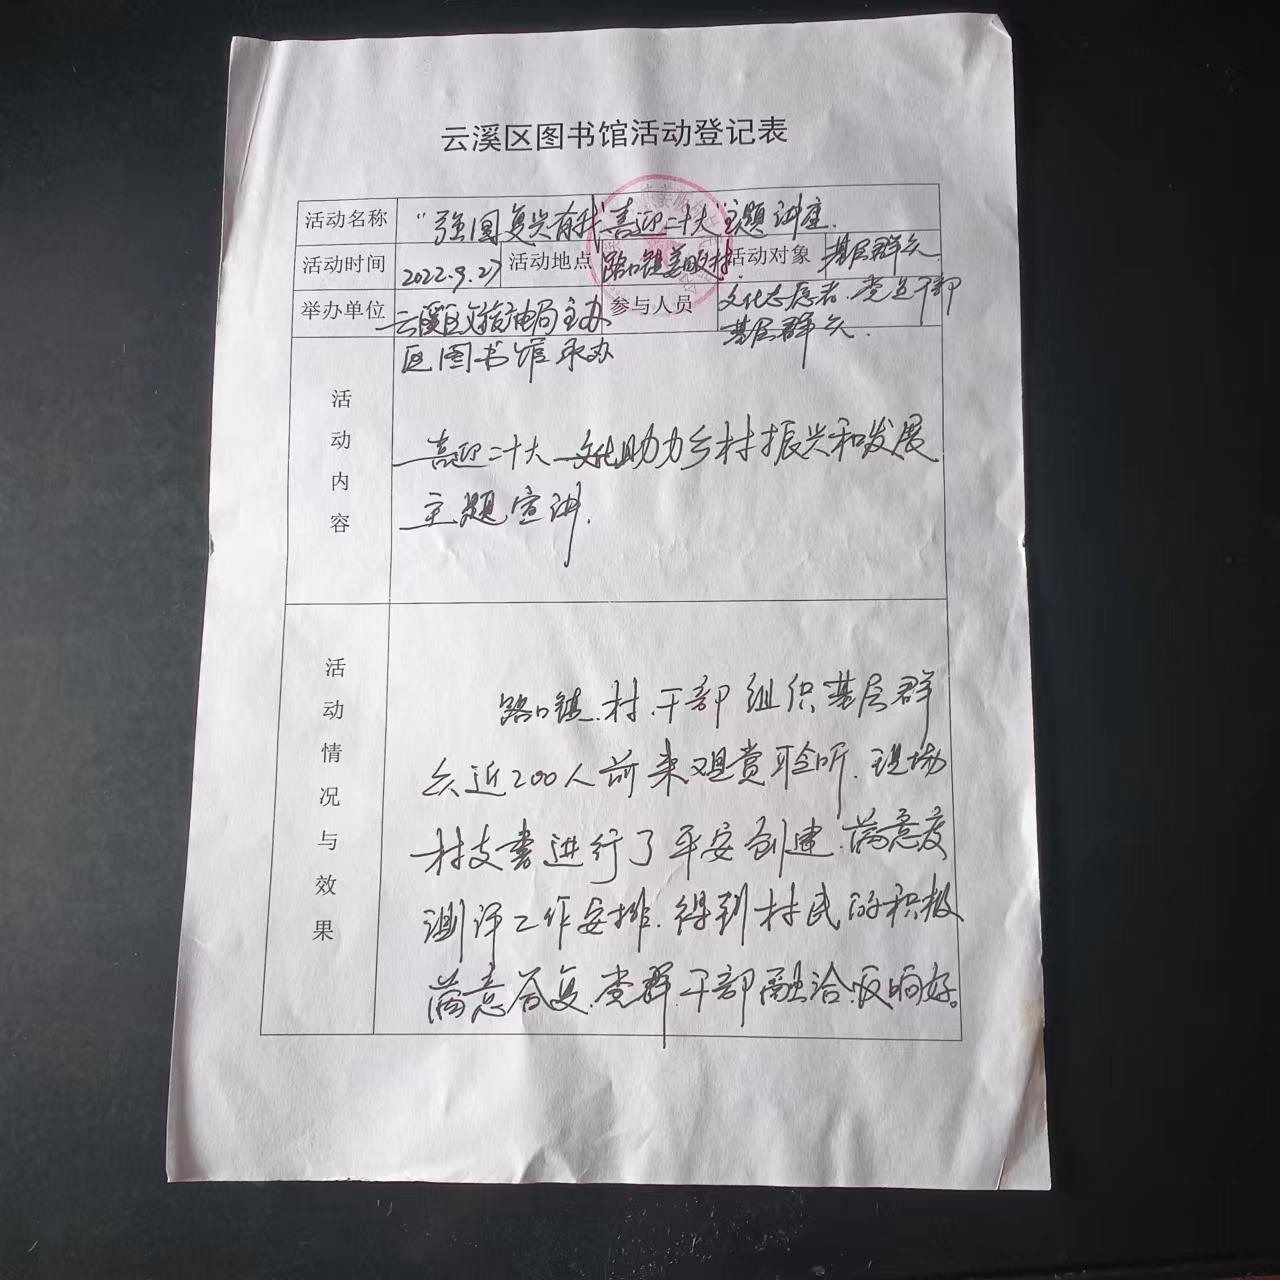 云溪区图书馆活动登记表
活动名称 "强国复兴有我 喜迎二十大"主题讲座.
活动时间 2022.9.27 活动地点 路口镇姜畈村. 活动对象 基层群众.
举办单位 云溪区文旅广电局主办 参与人员 文化志愿者.党建干部
区图书馆承办 基层群众.
活动内容
喜迎二十大 文化助力乡村振兴和发展
主题宣讲.
活动情况与效果
路口镇.村.干部组织基层群
众近200人前来观赏聆听.现场
村支书进行了平安创建.满意度
测评工作安排.得到村民的积极
满意答复.党群.干部融洽.反响好。